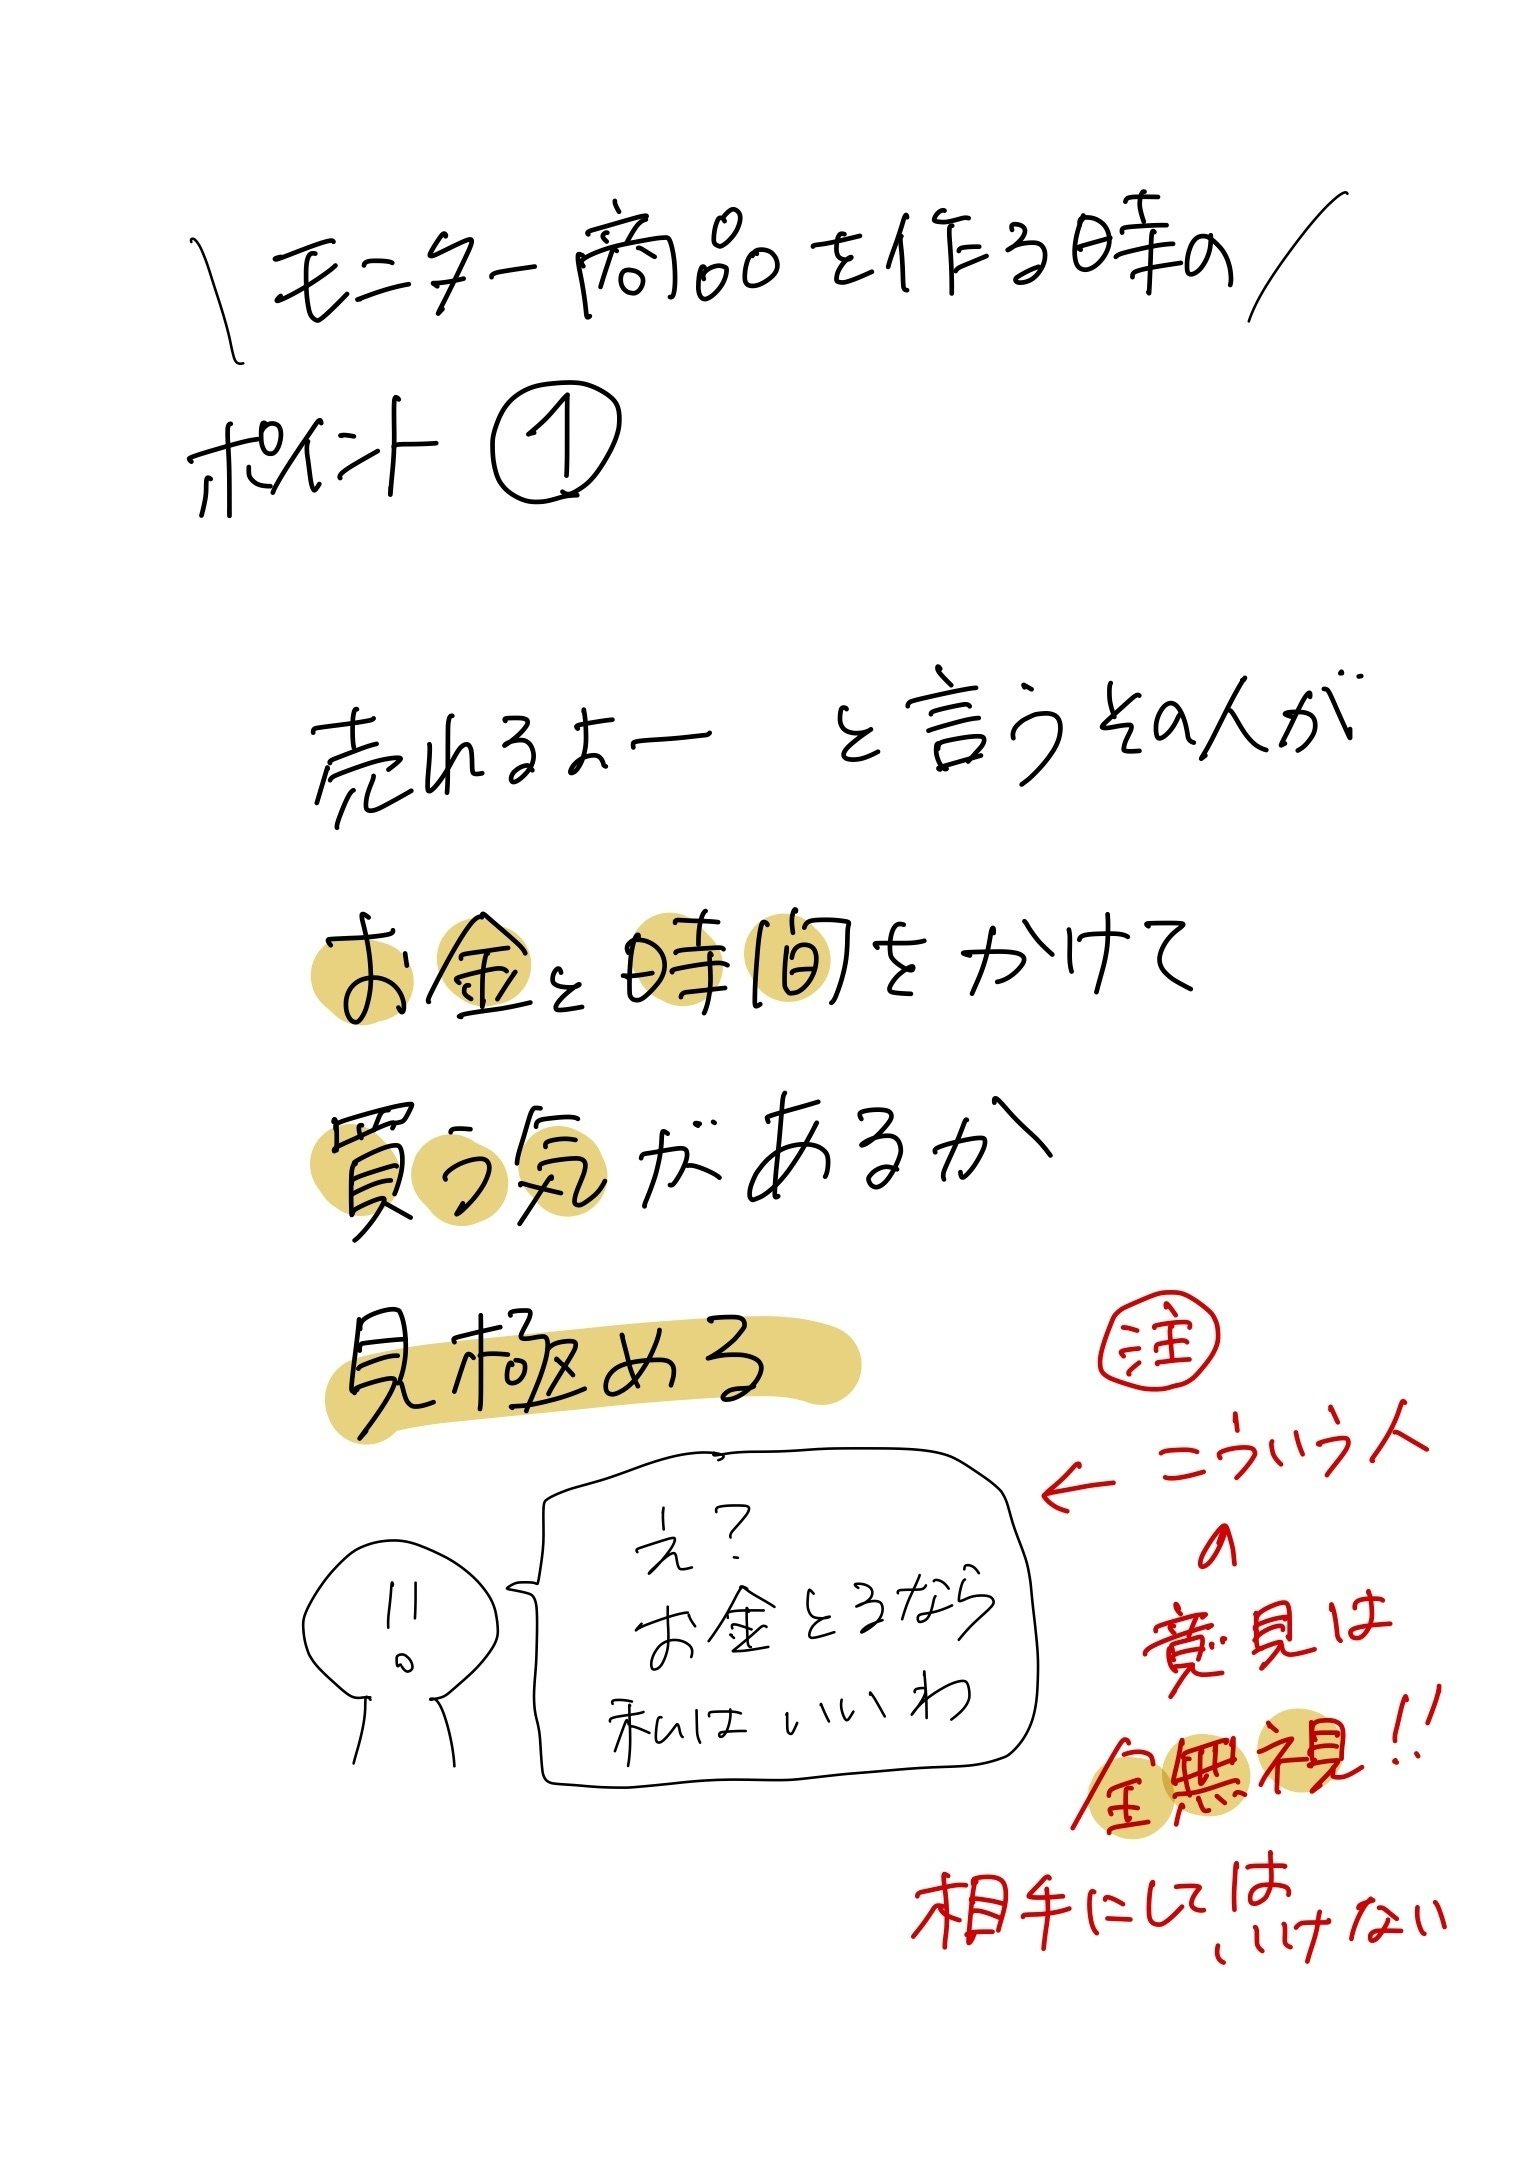 \モニター商品を作る時の/
ポイント①
売れるよー と言うその人が
お金と時間をかけて
買う気があるか
見極める
え?
お金とるなら
私はいいわ
注
← こういう人
の
意見は
全無視!!
相手にしては
いけない